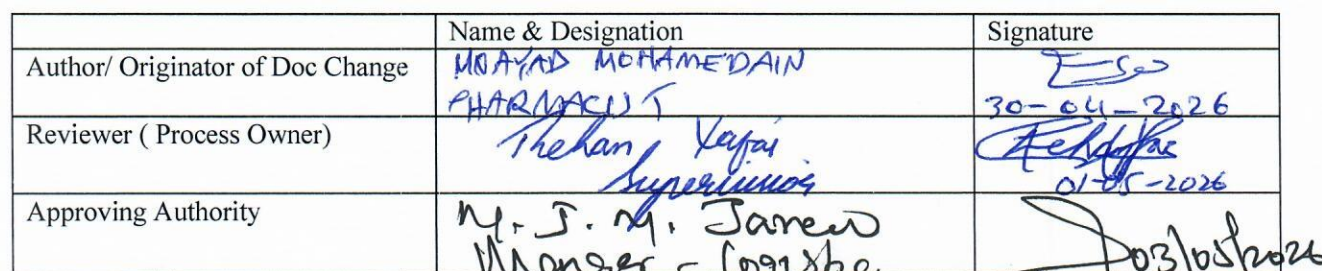 Name & Designation Signature
Author/ Originator of Doc Change MOAYAD MOHAMEDAIN
PHARMACIST 30-04-2026
Reviewer ( Process Owner) Thehan
Supervisor 01-05-2026
Approving Authority M. J. M.
Manager - 03/05/2026